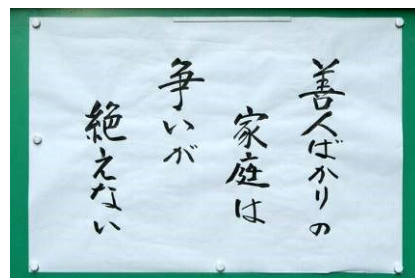 善人ばかりの
家庭は
争いが
絶えない